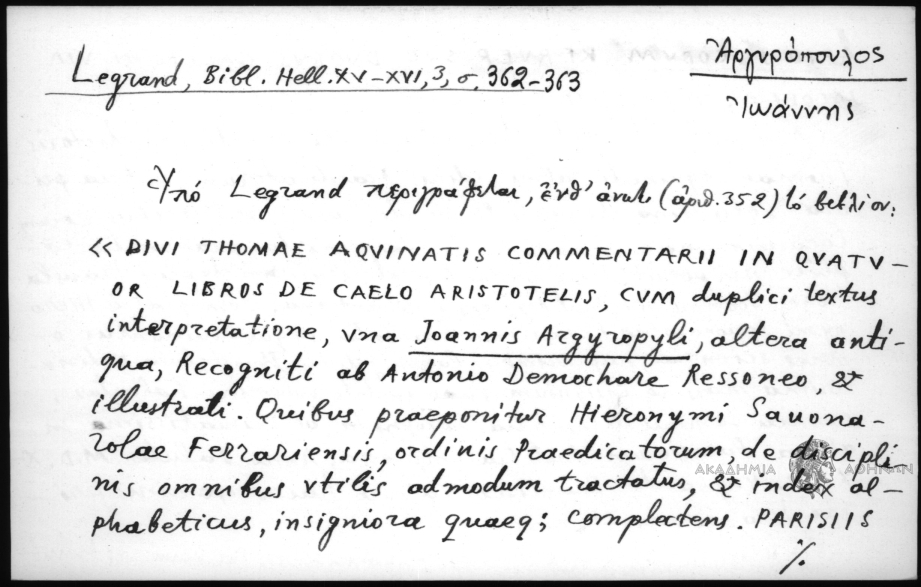 Legrand, Bibl. Hell. XV-XVI, 3, σ. 362-363
Ἀργυρόπουλος
Ἰωάννης
Ὑπό Legrand περιγράφεται, ἐνθ' ἀνωτ. (ἀριθ. 352) τό βιβλίον:
« DIVI THOMAE AQVINATIS COMMENTARII IN QVATV-
OR LIBROS DE CAELO ARISTOTELIS, CVM duplici textus
interpretatione, vna Joannis Argyropyli, altera anti-
qua, Recogniti ab Antonio Demochare Ressoneo, &
illustrati. Quibus praeponitur Hieronymi Sauona-
rolae Ferrariensis, ordinis Praedicatorum, de discipli-
nis omnibus vtilis admodum tractatus, & index al-
phabeticus, insigniora quaeq; complectens. PARISIIS
%.
ΑΚΑΔΗΜΙΑ ΑΘΗΝΩΝ